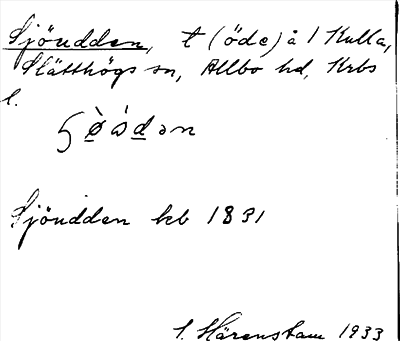 Sjöudden, t (öde) å 1 Kulla,
Slätthögs sn, Allbo hd, Krbs
l.
Sjöudden kb 1831
S. Härenstam 1933